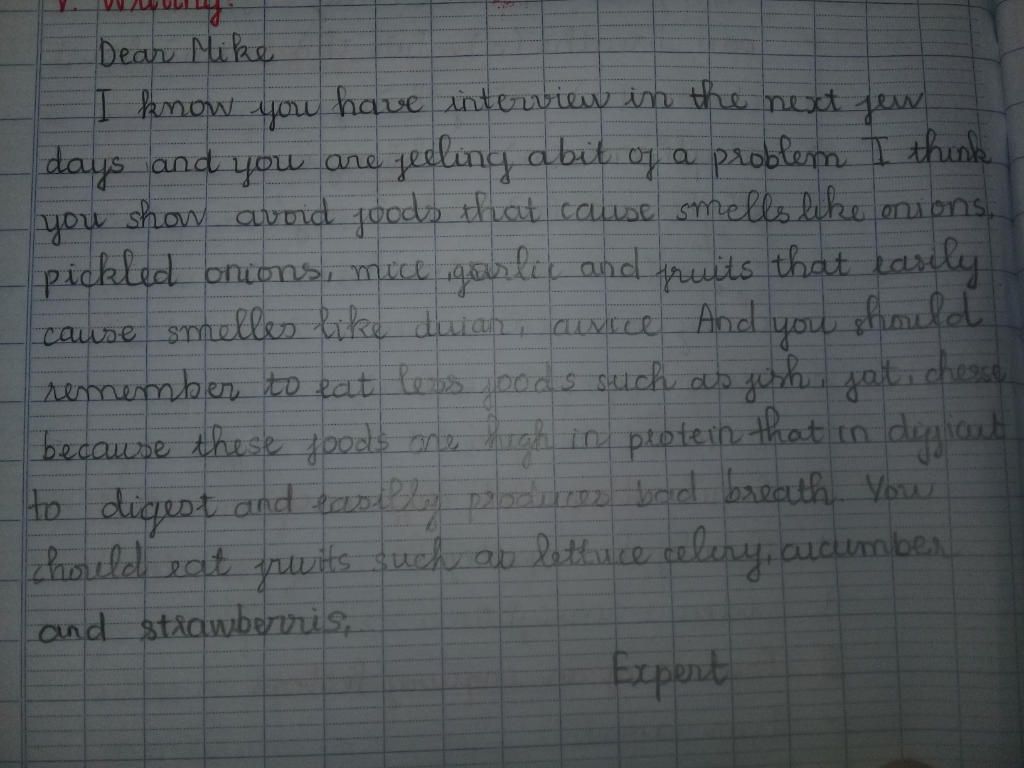 V. Writing:
Dear Mike
I know you have interview in the next few
days and you are feeling a bit of a problem I think
you show avoid foods that cause smells like onions,
pickled onions, mice garlic and fruits that easily
cause smelles like duian, And you should
remember to eat less foods such as fish, fat, cheese
because these foods are high in protein that in difficut
to digest and easilly produces bad breath. You
should eat fruits such as lettuce celery, cucumber
and strawberris,
Expert